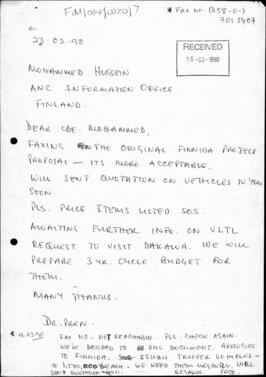 FIM/004/0020/7
* FAX NO: (358-0-)
7013407
23-02-90
RECEIVED
MOHAMMED HUSSEIN
ANC INFORMATION OFFICE
FINLAND.
DEAR CDE. MOHAMMED,
FAXING THE ORIGINAL FINNIDA PROJECT
PROPOSAL — ITS MORE ACCEPTABLE.
WILL SENT QUOTATION ON VEHICLES IN YOU
SOON.
PLS. PRICE ITEMS LISTED SOS.
AWAITING FURTHER INFO. ON VLTL
REQUEST TO VISIT DAKAWA. WE WILL
PREPARE 3 YR. CYCLE BUDGET FOR
THEM.
MANY THANKS.
DR. PREN.
FAX NO. NOT REACHABLE. PLS. CHECK AGAIN.
WE'VE DECIDED TO DHL DOCUMENT. APOLOGIES
TO FINNIDA. ISUZU TROOPER VEHICLES -
EACH. WE NEED THEM URGENTLY. WILL
SENT QUOTATION SOON.